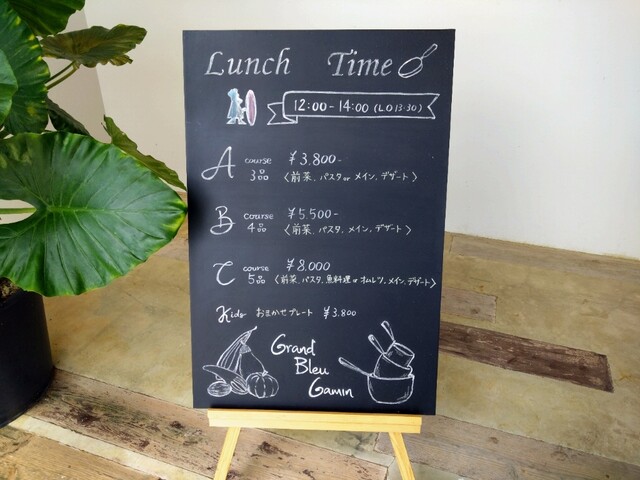 Lunch Time
12:00-14:00 (L.O 13:30)
A course ¥3.800-
3品 〈前菜、パスタ or メイン、デザート〉
B course ¥5.500-
4品 〈前菜、パスタ、メイン、デザート〉
C course ¥8.000
5品 〈前菜、パスタ、魚料理 or オムレツ、メイン、デザート〉
Kids おまかせプレート ¥3.800
Grand
Bleu
Gamin